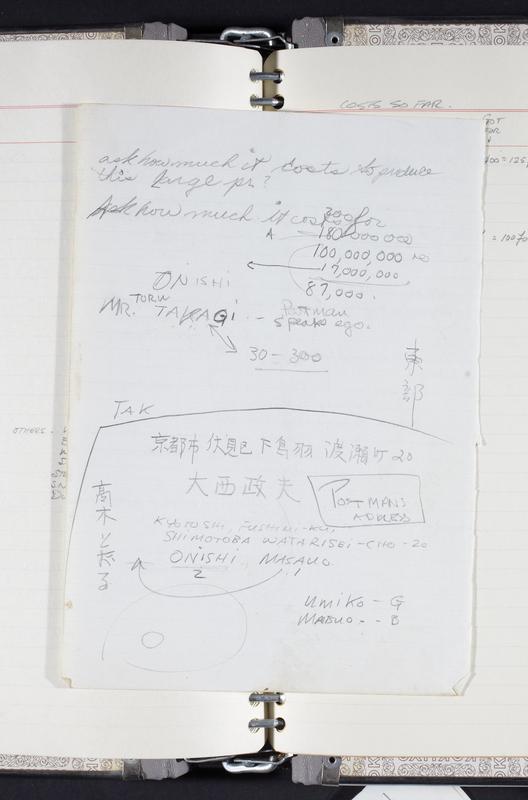 COSTS SO FAR.
ask how much it costs to produce
this large
Ask how much it costs for
300
A — 180,000,000
100,000,000
17,000,000
87,000.
ONISHI
MR. TORU TAKAGI — Postman
speaks ego.
30 = 300
東部
TAK
OTHERS.
京都市 伏見区 下鳥羽 渡瀬町 20
大西政夫
POSTMAN'S
ADDRESS
高木とおる
KYOTO SHI, FUSHIMI-KU,
SHIMOTOBA WATARISEI-CHO-20
ONISHI, MASAUO.
2 1
UMIKO - G
MABUO - - B